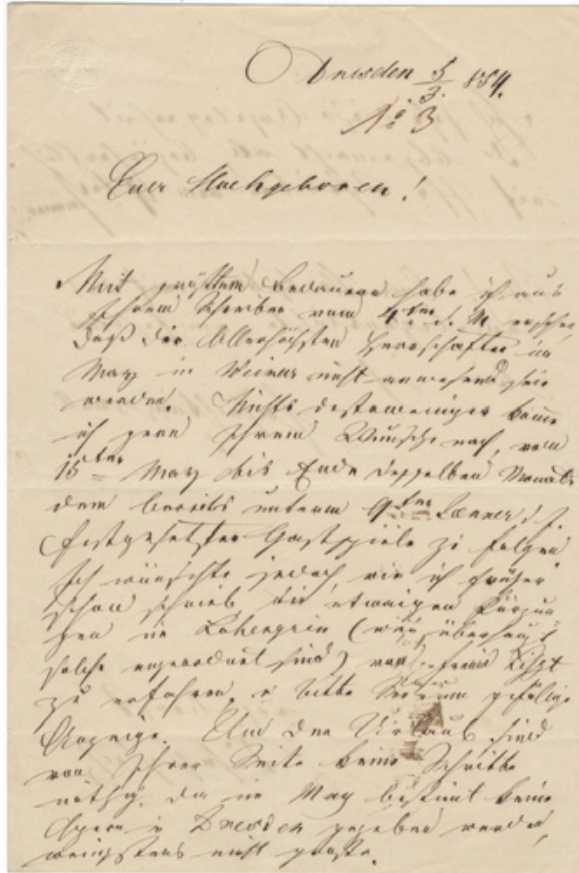 Dresden 5/3. 854.
1 3
Euer Hochgeboren!
Mit größtem Bedauern habe ich aus
Ihrem Schreiben vom 4ten d. M. ersehen,
daß die Allerhöchsten Herrschaften im
May in Weimar nicht anwesend sein
werden. Nichts destoweniger komme
ich gern Ihrem Wunsche nach, vom
15ten May bis Ende desselben Monats
dem bereits unterm 9ten Jänner d. J.
festgesetzten Gastspiele zu folgen.
Ich wünschte jedoch, wie ich früher
schon schrieb, die etwaigen Kürzun
gen in Lohengrin (wenn überhaupt
solche angeordnet sind) von Liszt
zu erfahren, u bitte gefällige
Anzeige. Um den Urlaub sind
von Ihrer Seite keine Schritte
nöthig, da im May bestimt keine
Opern in Dresden gegeben werden,
wenigstens nicht große.